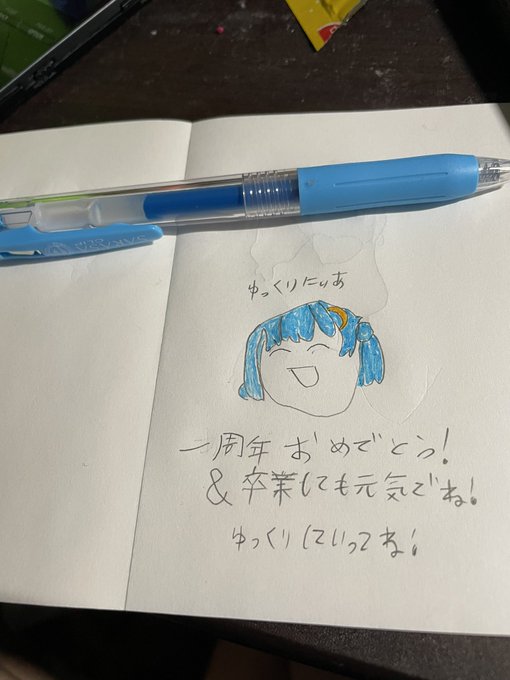 ゆっくりにりあ
一周年おめでとう!
&卒業しても元気でね!
ゆっくりしていってね!